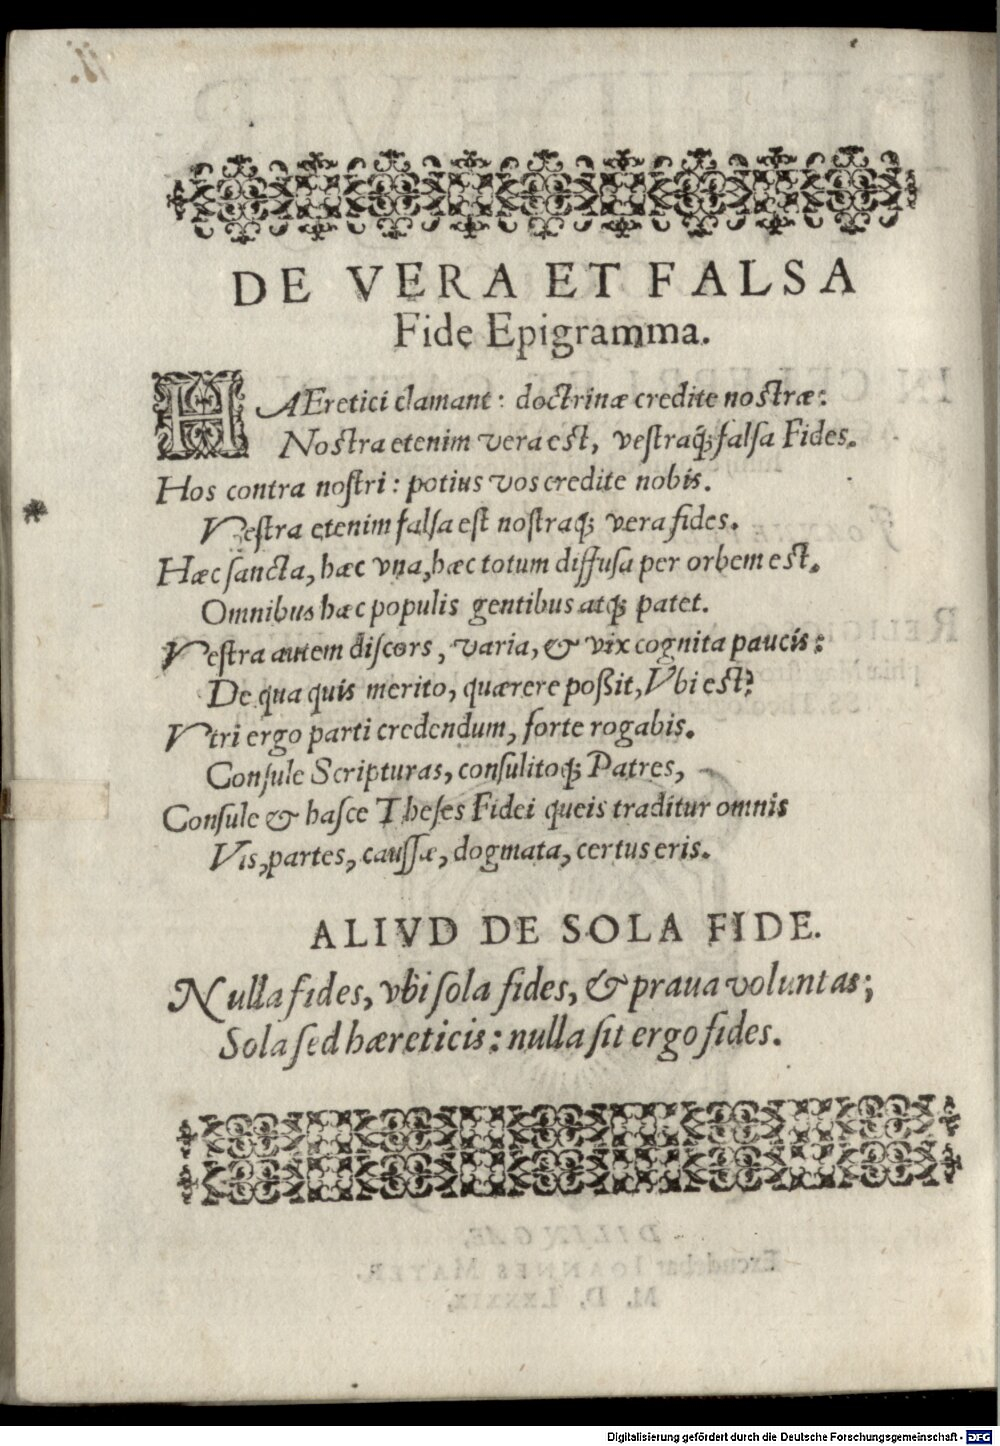 DE VERA ET FALSA
Fide Epigramma.
HAEretici clamant: doctrinæ credite nostræ:
Nostra etenim vera est, vestraq́; falsa Fides.
Hos contra nostri: potius vos credite nobis.
Vestra etenim falsa est nostraq́; vera fides.
Hæc sancta, hæc vna, hæc totum diffusa per orbem est.
Omnibus hæc populis gentibus atq́; patet.
Vestra autem discors, varia, & vix cognita paucis:
De qua quis merito, quærere poßit, Vbi est?
Vtri ergo parti credendum, forte rogabis.
Consule Scripturas, consulitoq́; Patres,
Consule & hasce Theses Fidei queis traditur omnis
Vis, partes, caussæ, dogmata, certus eris.
ALIVD DE SOLA FIDE.
Nulla fides, vbi sola fides, & praua voluntas;
Sola sed hæreticis: nulla sit ergo fides.
DILINGAE,
Excudebat IOANNES MAYER.
M. D. LXXXIX.
Digitalisierung gefördert durch die Deutsche Forschungsgemeinschaft - DFG